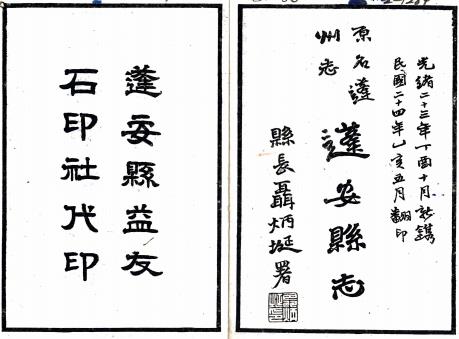 光緒二十三年丁酉十月新鐫
民國二十四年乙亥五月翻印
原名蓬
州志
蓬安縣志
縣長聶炳埏署
蓬安縣益友
石印社代印